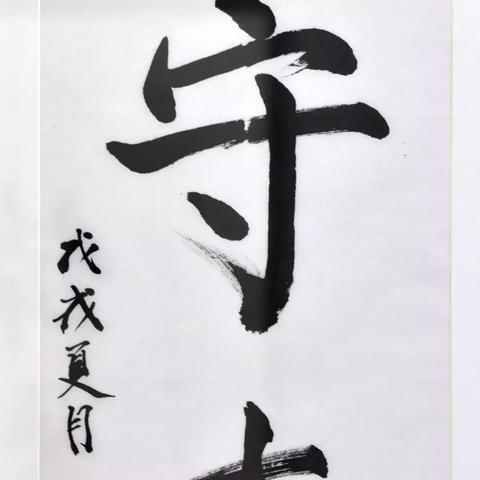 守
戊戌夏月